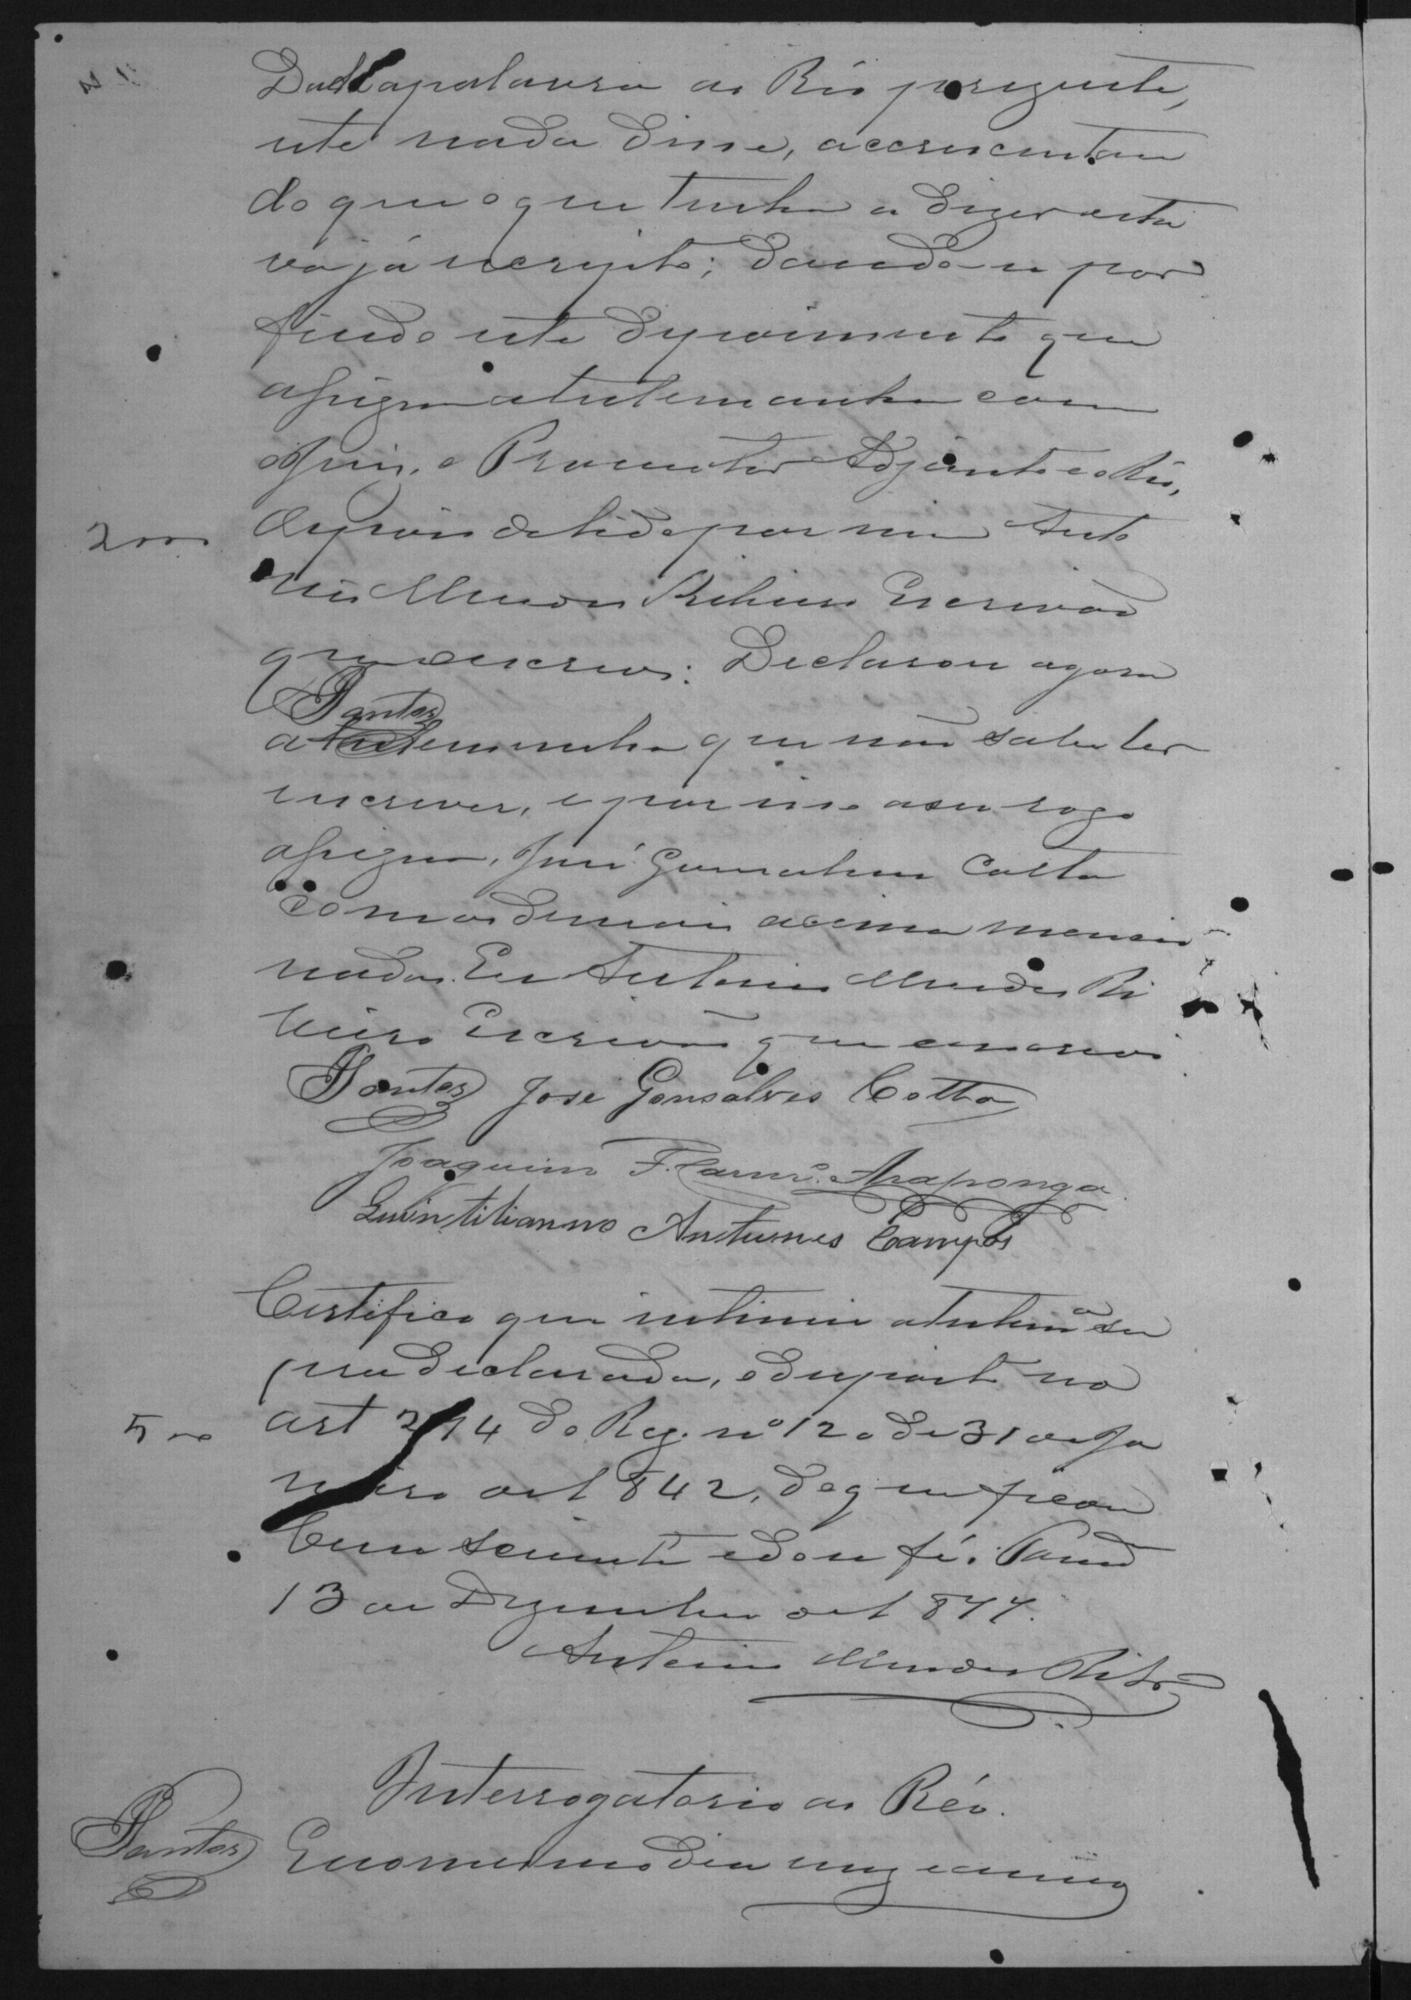 Dada apalavra ao Réo prezente,
este nada disse, accrescentan
do que o que tinha a dizer esta
va já escripto; dando-se por
findo este depoimento que
assigna atestemunha com
o Juiz, o Promotor Adjunto e o Réo,
2000 depois de lido por mim Anto
nio Mendes Ribeiro Escrivão
que o escrevi: Declarou agora
Santos
a testemunha que não sabe ler
escrever, e por isso a seu rogo
assigna, José Gonsalves Cotta
com os demais acima mencio
nados. Eu Antonio Mendes Ri
beiro Escrivão que o escrevi
Santos José Gonsalves Cotta
Joaquim F. Carnr.o Araponga
Quintilianno Antunes Campos
Certifico que intimei a testem.a su
pra declarada, o disposto no
500 art 294 do Reg. nº 120 de 31 de Ja
neiro de 1842, de que ficou
bem sciente e dou fé.
13 de Dezembro de 1877.
Antonio Mendes Ribr.o
Interrogatorio ao Réo.
Santos E no mesmo dia mez e anno